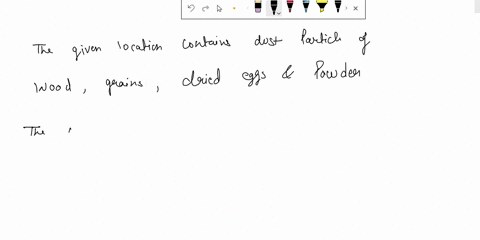 The given location contains dust particle of
wood, grains, dried eggs & Powder
The